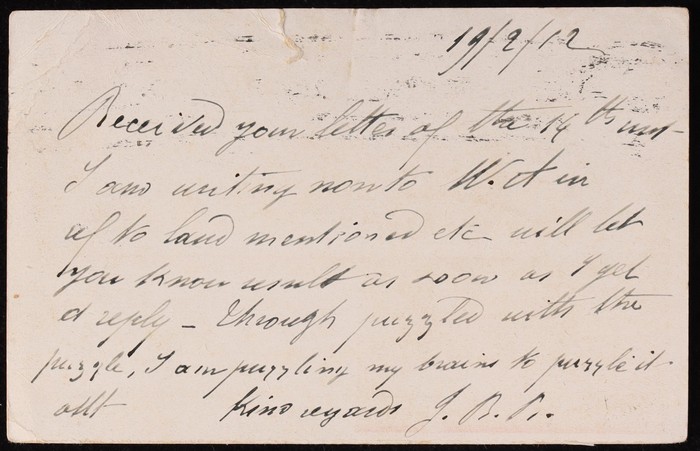 19/2/12
Received your letter of the 14th inst
I am writing now to W. A in
ref to land mentioned etc will let
you know result as soon as I get
a reply - through puzzled with the
puzzle, I am puzzling my brains to puzzle it
out Kind regards J. B. R.